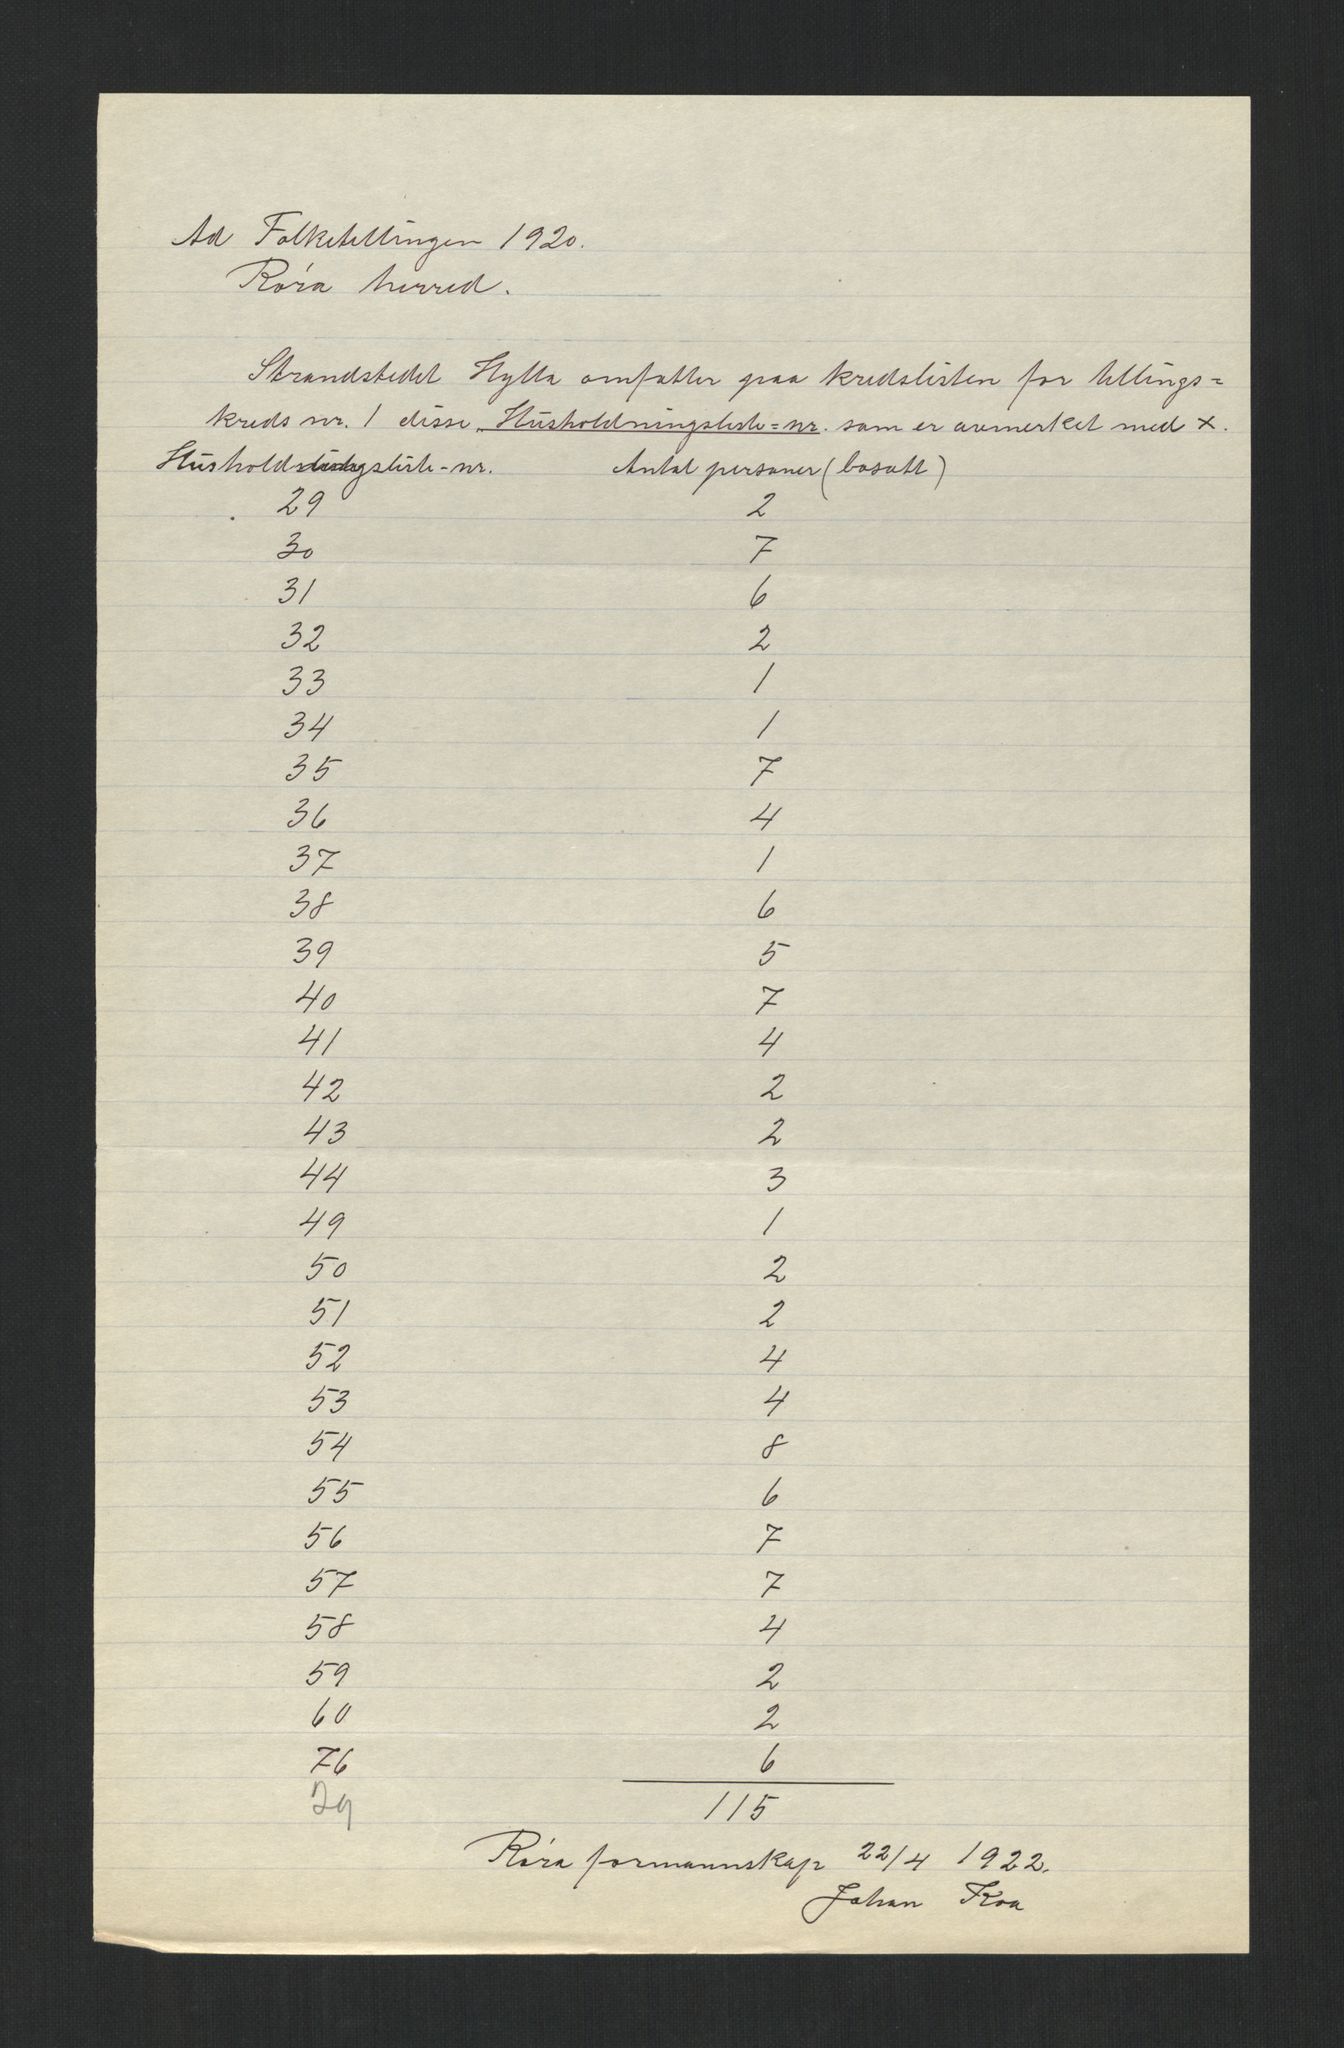 Ad Folketellingen 1920.
Røra herred.
Strandstedet Hylla omfatter paa kredslisten for tellings=
kreds nr. 1 disse „Husholdningsliste=nr. som er avmerket med x.
Husholdningsliste-nr. Antal personer (bosatt)
29 2
30 7
31 6
32 2
33 1
34 1
35 7
36 4
37 1
38 6
39 5
40 7
41 4
42 2
43 2
44 3
49 1
50 2
51 2
52 4
53 4
54 8
55 6
56 7
57 7
58 4
59 2
60 2
76 6
29 115
Røra formannskap 22/4 1922.
Johan